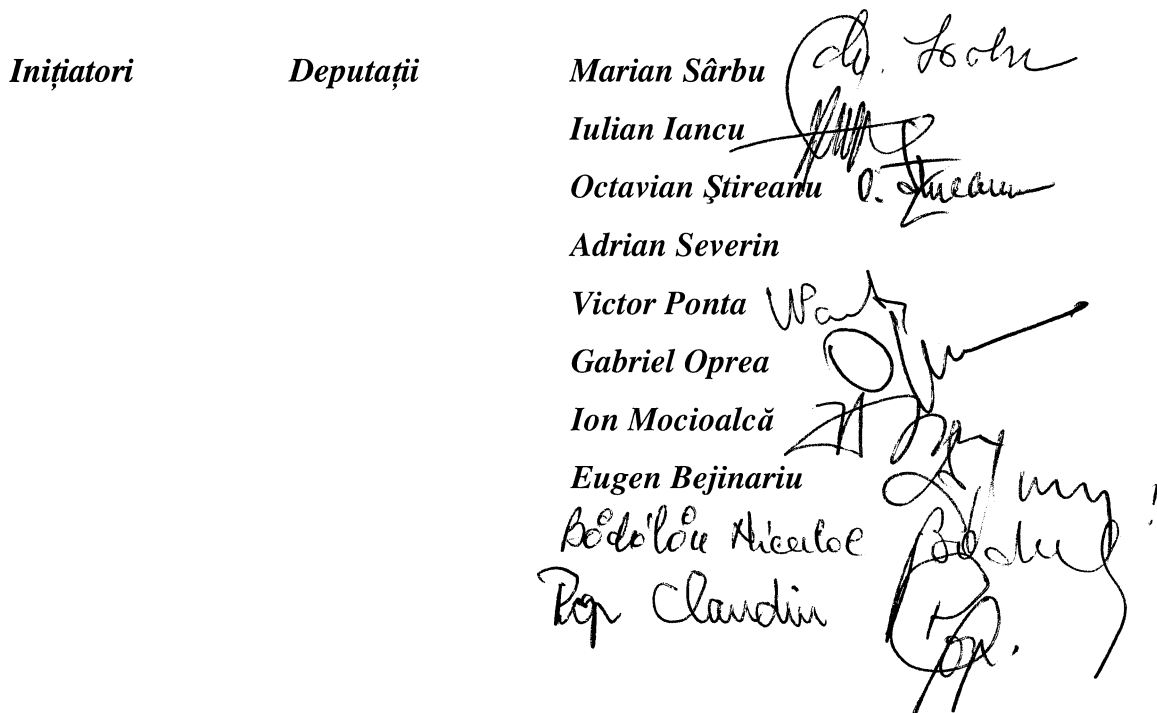 Inițiatori Deputații Marian Sârbu
Iulian Iancu
Octavian Ştireanu
Adrian Severin
Victor Ponta
Gabriel Oprea
Ion Mocioalcă
Eugen Bejinariu
Bădălău Niculae
Pop Claudiu